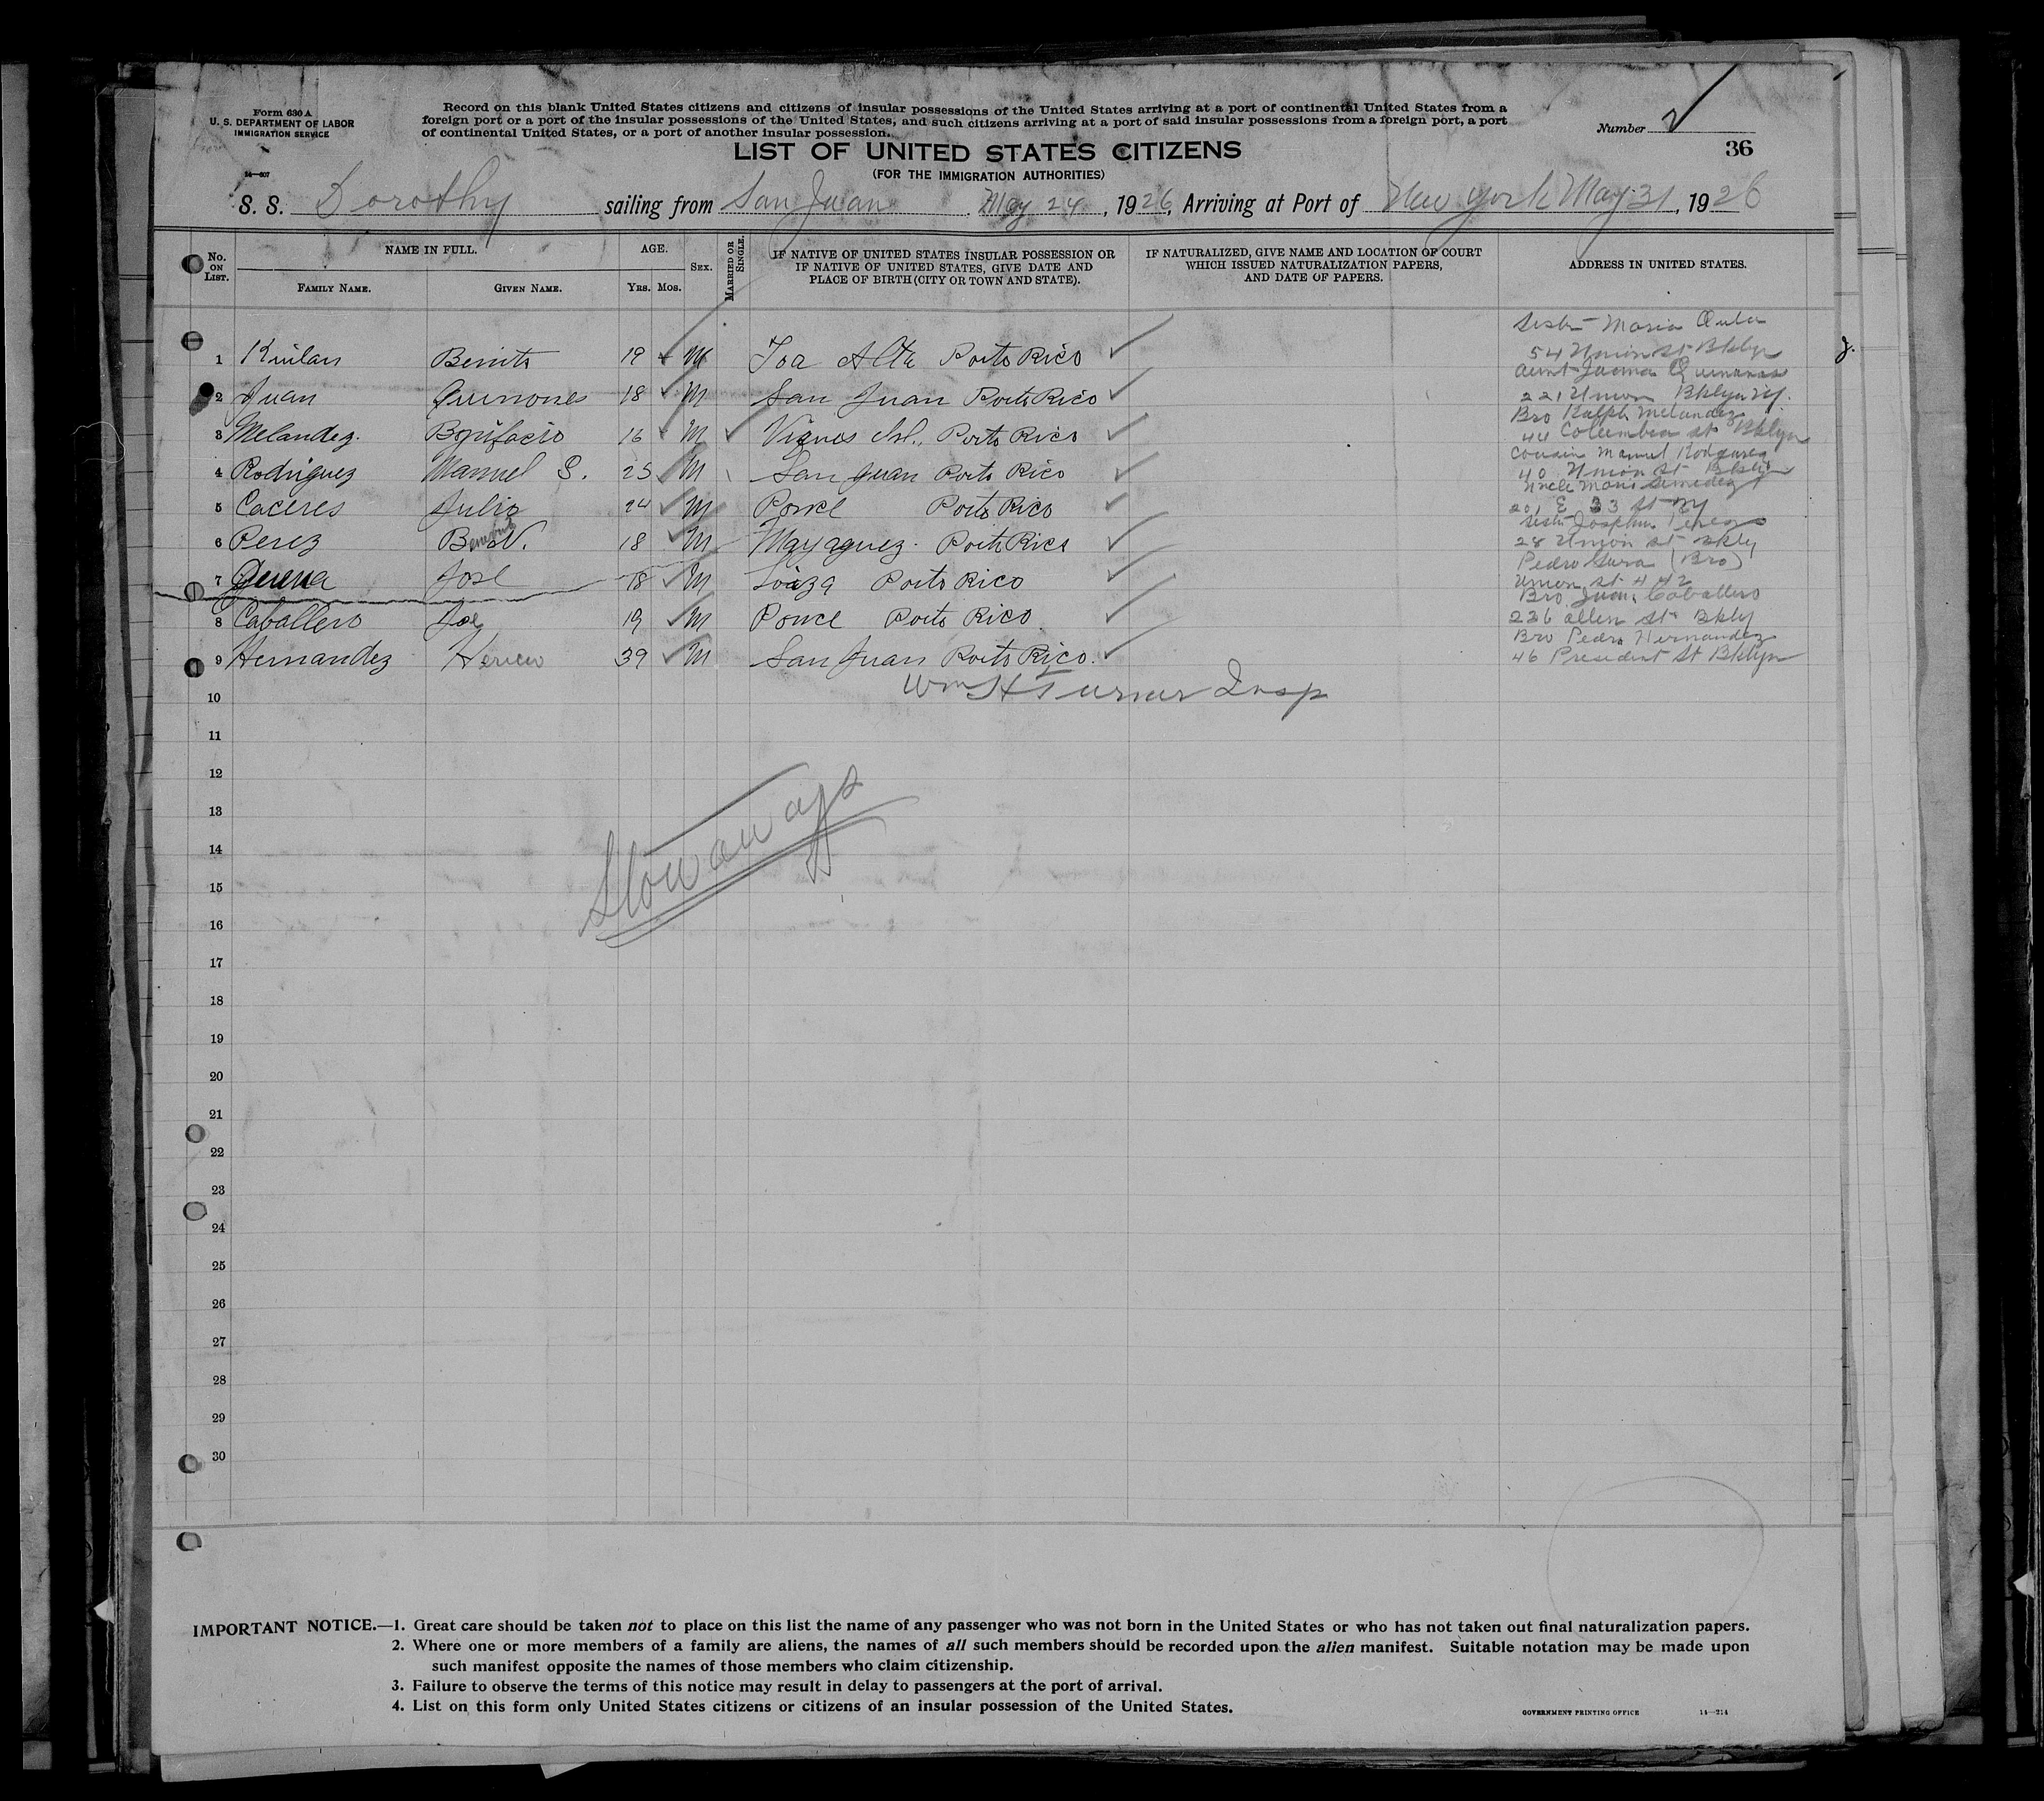 Form 630 A
U. S. DEPARTMENT OF LABOR
IMMIGRATION SERVICE
14—607
Record on this blank United States citizens and citizens of insular possessions of the United States arriving at a port of continental United States from a
foreign port or a port of the insular possessions of the United States, and such citizens arriving at a port of said insular possessions from a foreign port, a port
of continental United States, or a port of another insular possession.
Number 2
36
LIST OF UNITED STATES CITIZENS
(FOR THE IMMIGRATION AUTHORITIES)
S. S. Dorothy sailing from San Juan, May 24, 1926, Arriving at Port of New York May 31, 1926
No. ON LIST. NAME IN FULL. FAMILY NAME. GIVEN NAME. AGE. Yrs. Mos. Sex. MARRIED OR SINGLE. IF NATIVE OF UNITED STATES INSULAR POSSESSION OR IF NATIVE OF UNITED STATES, GIVE DATE AND PLACE OF BIRTH (CITY OR TOWN AND STATE). IF NATURALIZED, GIVE NAME AND LOCATION OF COURT WHICH ISSUED NATURALIZATION PAPERS, AND DATE OF PAPERS. ADDRESS IN UNITED STATES.
Sister Maria
1 Kuilan Benito 19 M Toa Alta Porto Rico 54 Union St Bklyn
Aunt Juana
2 Juan Quinones 18 M San Juan Porto Rico 221 Union Bklyn NY.
Bro Ralph Melandez
3 Melandez. Bonifacio 16 M Viques Isl., Porto Rico 44 Columbia St Bklyn
Cousin Manuel
4 Rodriguez Manuel S. 25 M San Juan Porto Rico 40 Union St Bklyn
Uncle
5 Caceres Julio 24 M Ponce Porto Rico 201 E 33 St NY
Sister Josephine Perez
6 Perez 18 M Mayaguez. Porto Rico 28 Union St Bkly
Pedro (Bro)
7 Jose 18 M Loiza Porto Rico Union St 442
Bro Juan Caballero
8 Caballero Joe 19 M Ponce Porto Rico. 236 Allen St Bkly
Bro Pedro Hernandez
9 Hernandez 39 M San Juan Porto Rico. 46 President St Bklyn
Wm H Turner Insp
10
11
12
13
Stowaways
14
15
16
17
18
19
20
21
22
23
24
25
26
27
28
29
30
IMPORTANT NOTICE.—1. Great care should be taken not to place on this list the name of any passenger who was not born in the United States or who has not taken out final naturalization papers.
2. Where one or more members of a family are aliens, the names of all such members should be recorded upon the alien manifest. Suitable notation may be made upon
such manifest opposite the names of those members who claim citizenship.
3. Failure to observe the terms of this notice may result in delay to passengers at the port of arrival.
4. List on this form only United States citizens or citizens of an insular possession of the United States.
GOVERNMENT PRINTING OFFICE 14—214